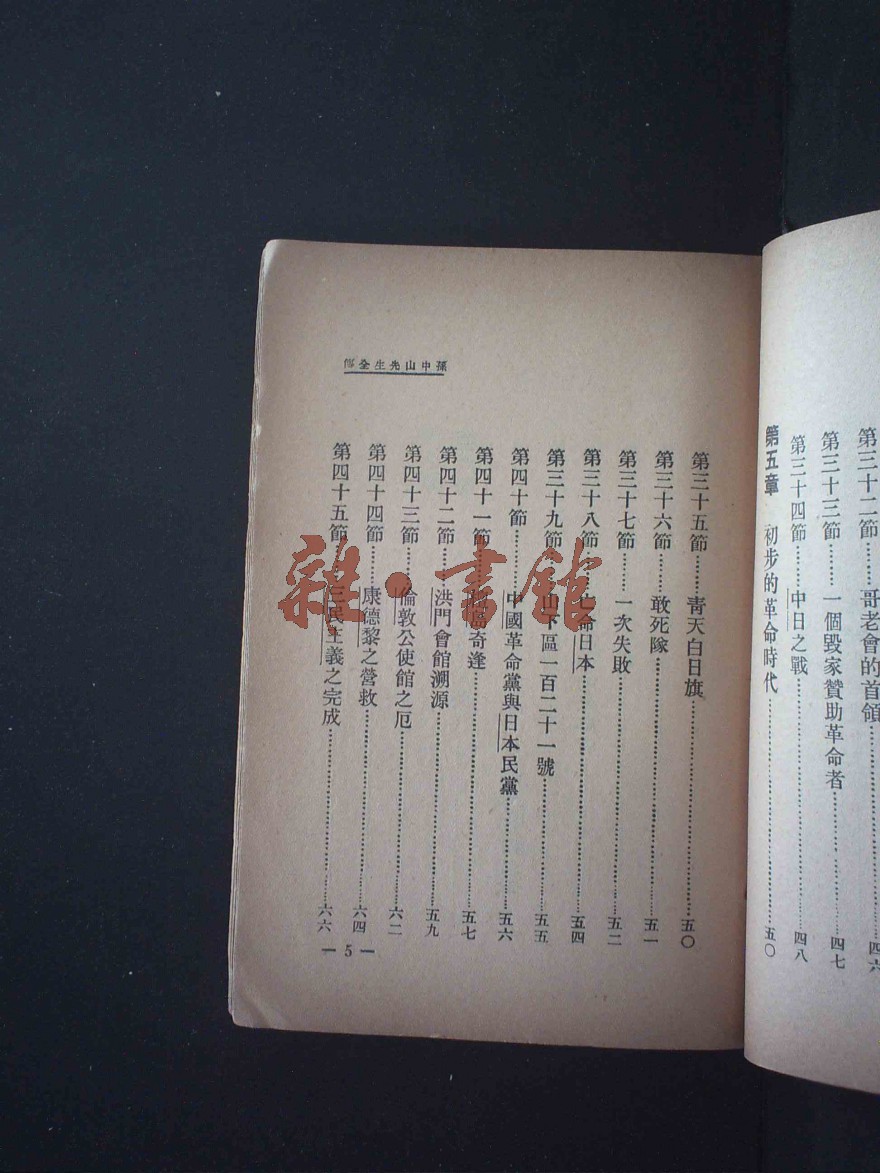 第三十二節……哥老會的首領……四六
第三十三節……一個毀家贊助革命者……四七
第三十四節……中日之戰……四八
第五章 初步的革命時代……五〇
孫中山先生全傳
第三十五節……青天白日旗……五〇
第三十六節……敢死隊……五一
第三十七節……一次失敗……五二
第三十八節……亡命日本……五四
第三十九節……山下區一百二十一號……五五
第四十節……中國革命黨與日本民黨……五六
第四十一節……奇逢……五七
第四十二節……洪門會館溯源……五九
第四十三節……倫敦公使館之厄……六二
第四十四節……康德黎之營救……六四
第四十五節……三民主義之完成……六六
— 5 —
雜·書館